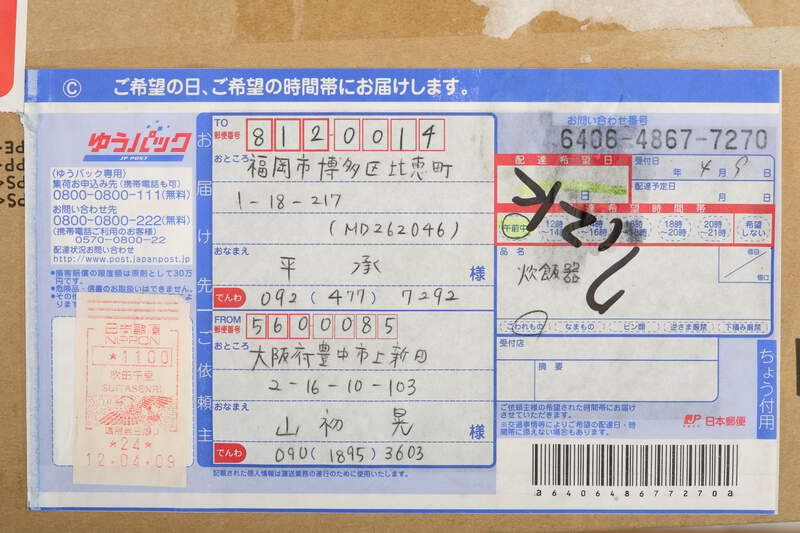 © ご希望の日、ご希望の時間帯にお届けします。
ゆうパック
JP POST
〈ゆうパック専用〉
集荷お申込み先(携帯電話も可)
0800-0800-111(無料)
お問い合わせ先
0800-0800-222(無料)
(携帯電話ご利用のお客様)
0570-0800-22
配達状況お問い合わせ
http://www.post.japanpost.jp
●損害賠償の限度額は原則として30万円です。
●危険品・信書のお取扱いはできません。
日本郵便
NIPPON
*1100
吹田千里
SUITASENRI
*24*
12.04.09
お届け先
TO
郵便番号
812-0014
おところ
福岡市博多区比恵町
1-18-217
(MD262046)
おなまえ
平 承 様
でんわ 092(477)7292
ご依頼主
FROM
郵便番号
560-0085
おところ
大阪府豊中市上新田
2-16-10-103
おなまえ
山初 晃 様
でんわ 090(1895)3603
記載された個人情報は運送業務の遂行のために使用いたします。
お問い合わせ番号
6406-4867-7270
配達希望日
日
受付日
年 4月 9日
配達予定日
月 日
配達希望時間帯
午前中
12時~14時
18時~20時
20時~21時
希望しない
品名
炊飯器
個目
個口
こわれもの
なまもの
ビン類
逆さま厳禁
下積み厳禁
受付店
摘要
ご依頼主様の希望された時間帯にお届けさせていただきます。
※交通事情等によりご希望の配達日・時間帯に添えない場合もあります。
日本郵便
ちょう付用
a640648677270a